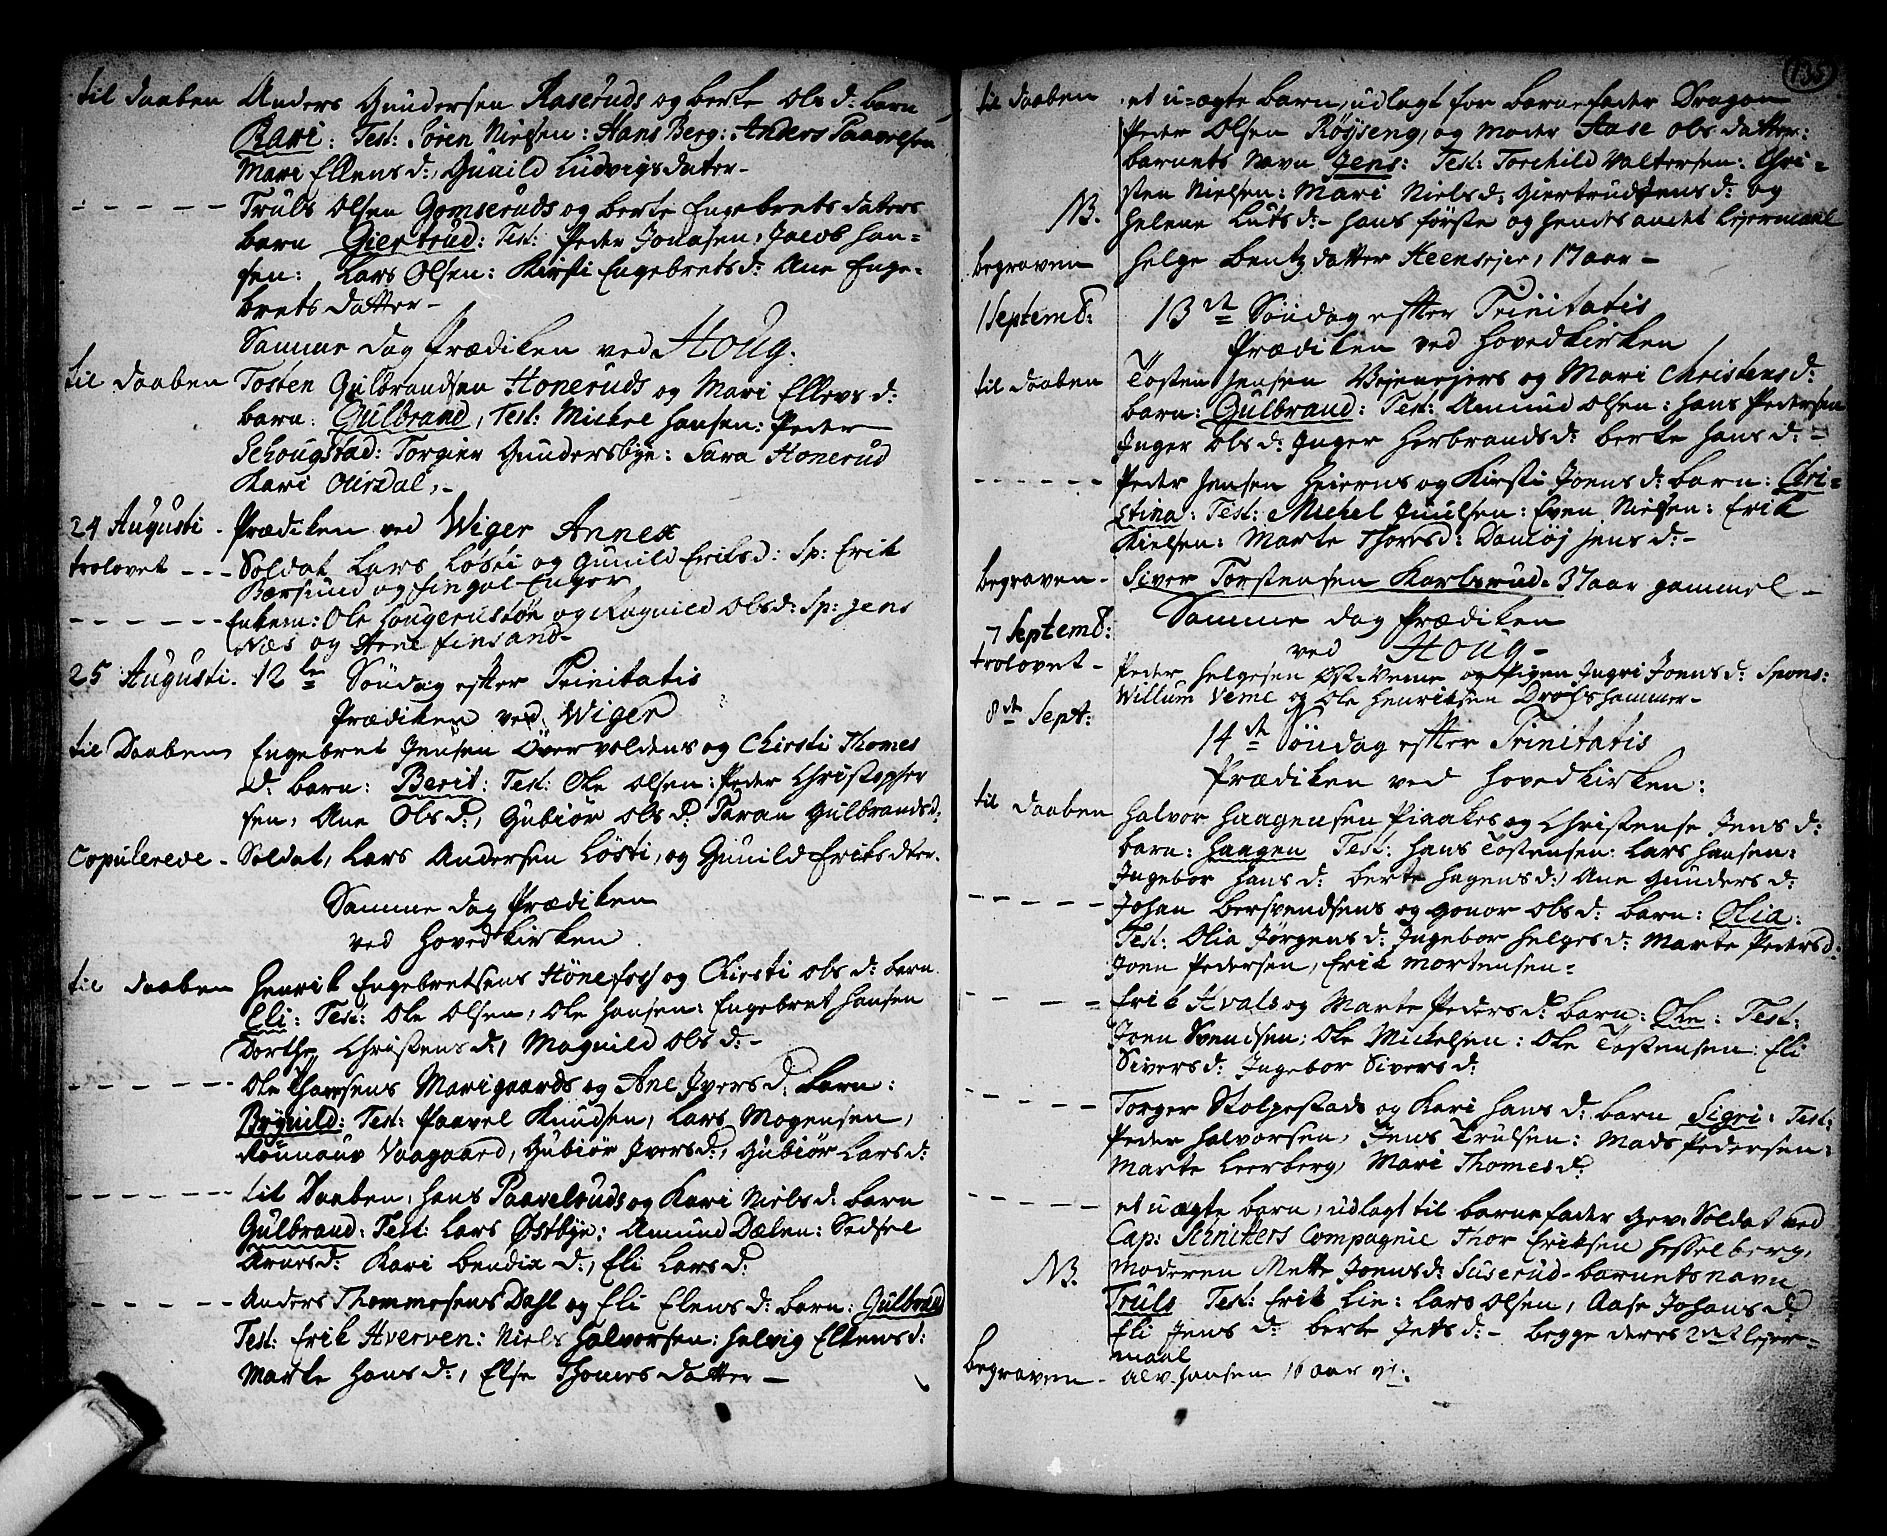 til daaben Anders Gundersen Raseruds og berte Ols d: barn
Kari: Test: Sören Nielsen: Hans Berg: Anders Paavelsen
Mari Ellens d: Gunild Ludvigsdater-
- - - - - Truls Olsen Gomseruds og berte Engebrets daters
barn Giertrud: Test: Peder Jonasen, Jacob Han=
sen: Lars Olsen: Kirsti Engebretsd: Ane Enge-
brets datter-
Samme dag Prædiken ved Houg.
til daaben Tosten Gulbrandsen Honeruds og Mari Ellevs d:
barn: Gulbrand, Test: Mickel Hansen: Peder
Schougstad: Torgier Gundersbye: Sara Honerud
Kari Oursdal,-
24 Augusti - Prædiken ved Wiger Annex
trolovet - - - Soldat Lars Løsti og Gunild Eriks d: Sp: Erik
Bærsund og Fingal Enger
- - - - - Enkem: Ole Hougerustøe og Ragnild Olsd: Sp: Jens
Næs og Arne Finsand-
25 Augusti. 12te Söndag efter Trinitatis
Prædiken ved Wiger
til Daaben Engebret Jensen Övervoldens og Chirsti Thomes
d: barn: Berit: Test: Ole Olsen: Peder Christopher
sen: Ane Ols d:, Gubiør Ols d: Taran Gulbrandsd:
Copulerede - Soldat, Lars Andersen Løsti, og Gunild Eriks dter.
Samme dag Prædiken
ved Hovedkirken
til daaben Henrik Engebretsens Hönefoss og Chirsti Ols d: barn
Eli: Test: Ole Olsen, Ole Hansen: Engebret Hansen
Dorthe Christens d:, Magnild Ols d:-
- - - - - Ole Hansens Marigaards og Ane Ivers d: barn:
Brynild: Test: Paavel Knudsen, Lars Mogensen,
Rönnaug Vaagaard, Gubiør Ivers d:, Gubiør Lars d:
- - - - - til Daaben, Hans Paavelsruds og Kari Niels d: barn
Gulbrand: Test: Lars Østbye: Amund Dælen: Sidsel
Arnesd: Kari Bendix d:, Eli Lars d:
- - - - - Anders Thommesens Dahl og Eli Elens d: barn: Gulbrand
Test: Erik Hverven: Niels Halvorsen: Helvig Ellensd:
Marte Hans d:, Else Thomes datter-
135
til daaben et u-ægte barn, udlagt for barnefader Dragon
Peder Olsen Röysseng, og moder Aase Ols datter:
barnets navn Jens: Test: Torchild Valtersen: Chri-
sten Nielsen: Mari Niels d: Giertrud Jens d: og
NB. Helene Lutsd:- hans første og hendes andet Leiermaal
begraven Helge Bentz datter Heensejer, 17 aar-
1 Septemb: 13de Söndag efter Trinitatis
Prædiken ved Hovedkirken
til daaben Tosten Jensen Vejenejers og Mari Christens d:
barn: Gulbrand: Test: Amund Olsen: Hans Pedersen
Inger Ols d: Inger Herbrandsd: Berte Hans d:-
- - - - - Peder Jensen Heierns og Kirsti Joens d: barn: Chri-
stina: Test: Michel Juulsen: Even Nielsen: Erik
Nielsen: Marte Thoresd: Damøj Jens d:-
Begraven- Siver Torstensen Karlsrud. 37 aar gammel-
Samme dag Prædiken
7 Septemb: ved Houg-
trolovet- Peder Helgesen Øst-Veme og Pigen Ingri Joens d: Spons:
Willum Veme og Ole Henriksen Drolshammer-
8de Sept: 14de Söndag efter Trinitatis
Prædiken ved Hovedkirken:
til daaben Halvor Haagensen Piaakes og Christense Jens d:
barn: Haagen Test: Hans Tostensen: Lars Hansen:
Ingebor Hans d: berte Hagens d:, Ane Gunders d:
- - - - - Johan Bersvendsens og Gonor Ols d: barn: Olia:
Test: Olia Jørgens d: Ingebor Helges d: Marte Pedersd:
Joen Pedersen, Erik Mortensen-
- - - - Erik Hvals og Marte Peders d: barn: Ole: Test:
Joen Svendsen: Ole Mickelsen: Ole Tostensen: Eli
Sivers d: Ingebor Sivers d:
- - - - - Torger Stolpestads og Kari Hans d: barn Sigri: Test:
Peder Halvorsen, Jens Trulsen: Mads Pedersen:
Marte Leerberg, Mari Thomes d:
- - - - - et uægte barn, udlagt til barnefader Gev: Soldat ved
Cap: Schnitters Compagnie Thor Eriksen Hesselberg,
NB. Moderen Mette Joensd: Suserud- barnets navn
Truls Test: Erik Lie: Lars Olsen, Aase Johans d:
Eli Jens d: berte Jens d:- begge deres 2net Lejer-
maal
begraven- Alv Hansen 16 aar gl: